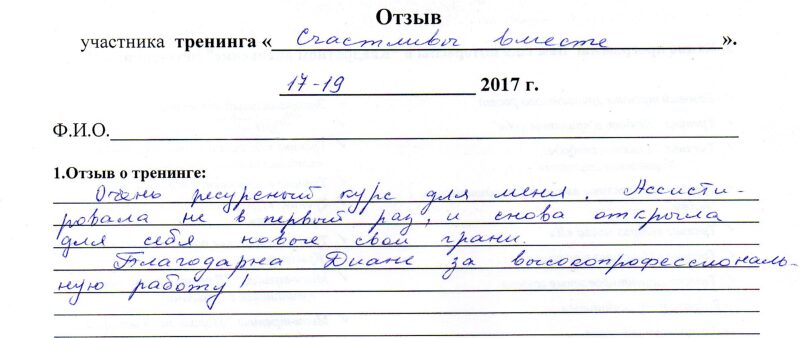 Отзыв
участника тренинга « Счастливы вместе ».
17-19 2017 г.
Ф.И.О.
1.Отзыв о тренинге:
Очень ресурсный курс для меня. Ассисти-
ровала не в первый раз, и снова открыла
для себя новые свои грани.
Благодарна Диане за высокопрофессиональ-
ную работу!